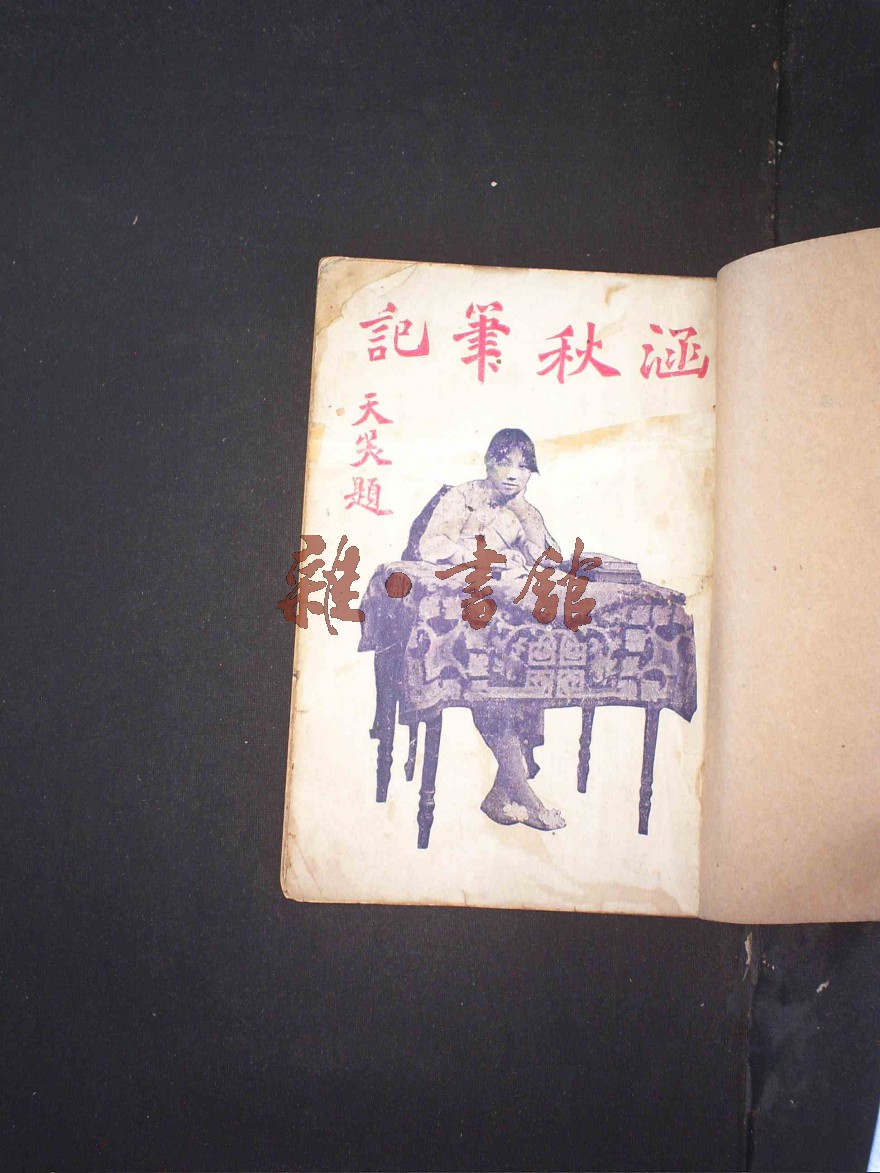 涵秋筆記
天笑題
雜·書館